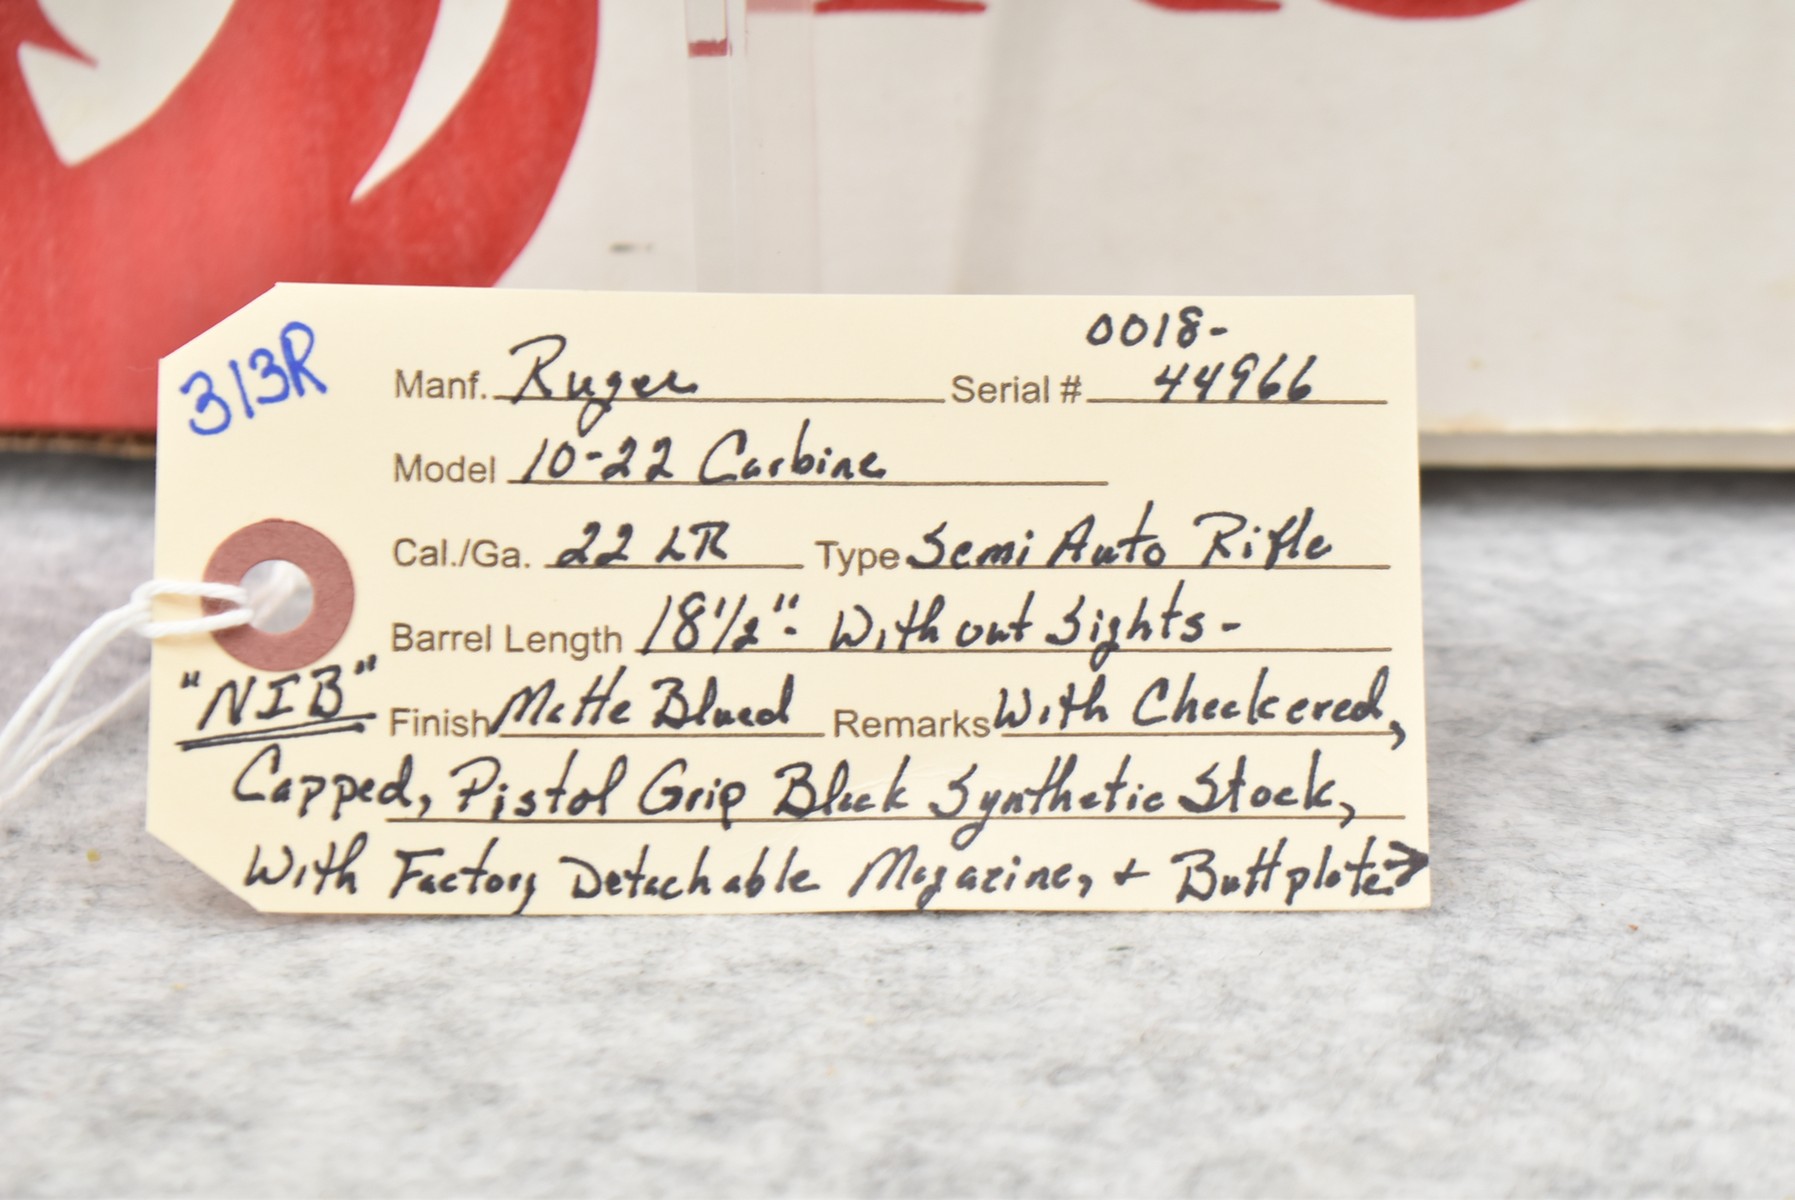 313R
0018-
Manf. Ruger Serial # 44966
Model 10-22 Carbine
Cal./Ga. 22 LR Type Semi Auto Rifle
Barrel Length 18 1/2" - Without Sights -
"NIB" Finish Matte Blued Remarks With Checkered,
Capped, Pistol Grip Black Synthetic Stock,
With Factory Detachable Magazine, + Buttplate →